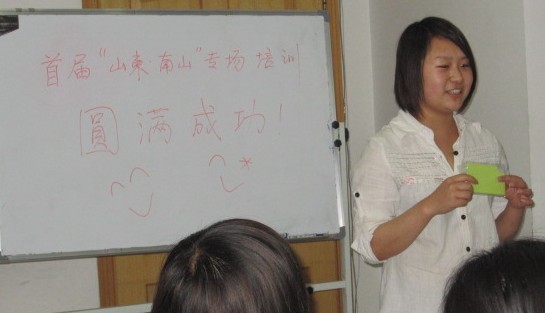 首届"山东南山"专场培训
圆满成功!